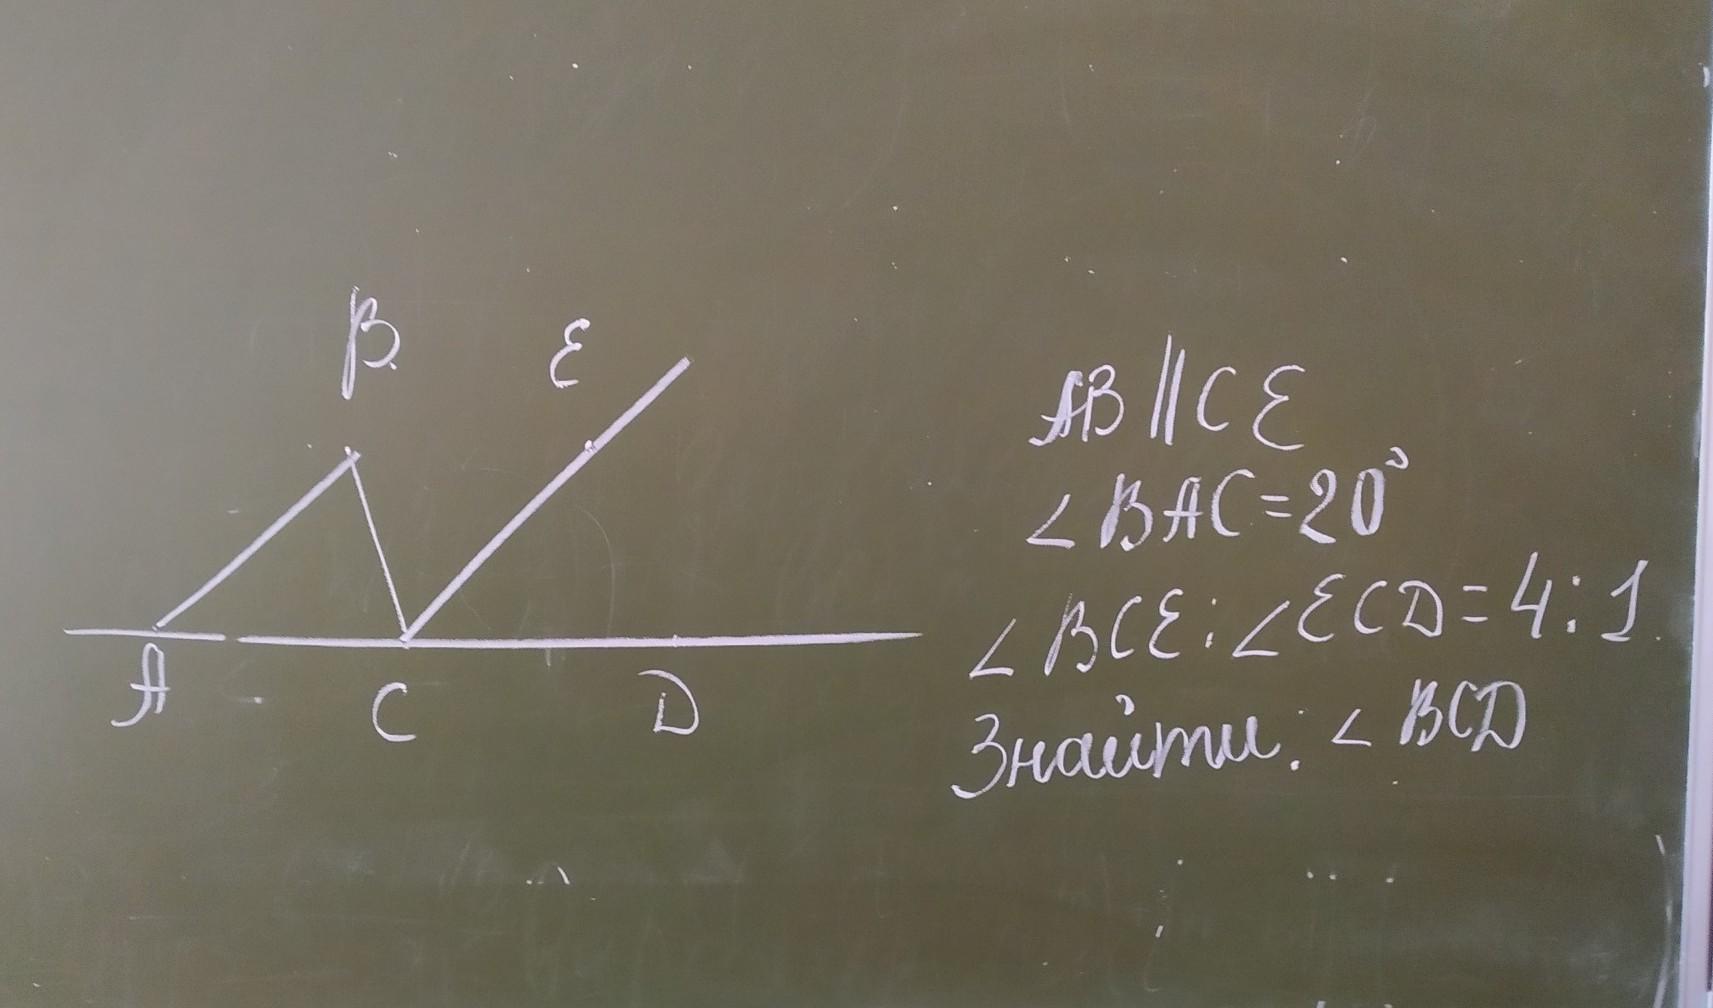 B
E
A C D
AB || CE
∠BAC=20°
∠BCE:∠ECD=4:1
Знайти: ∠BCD